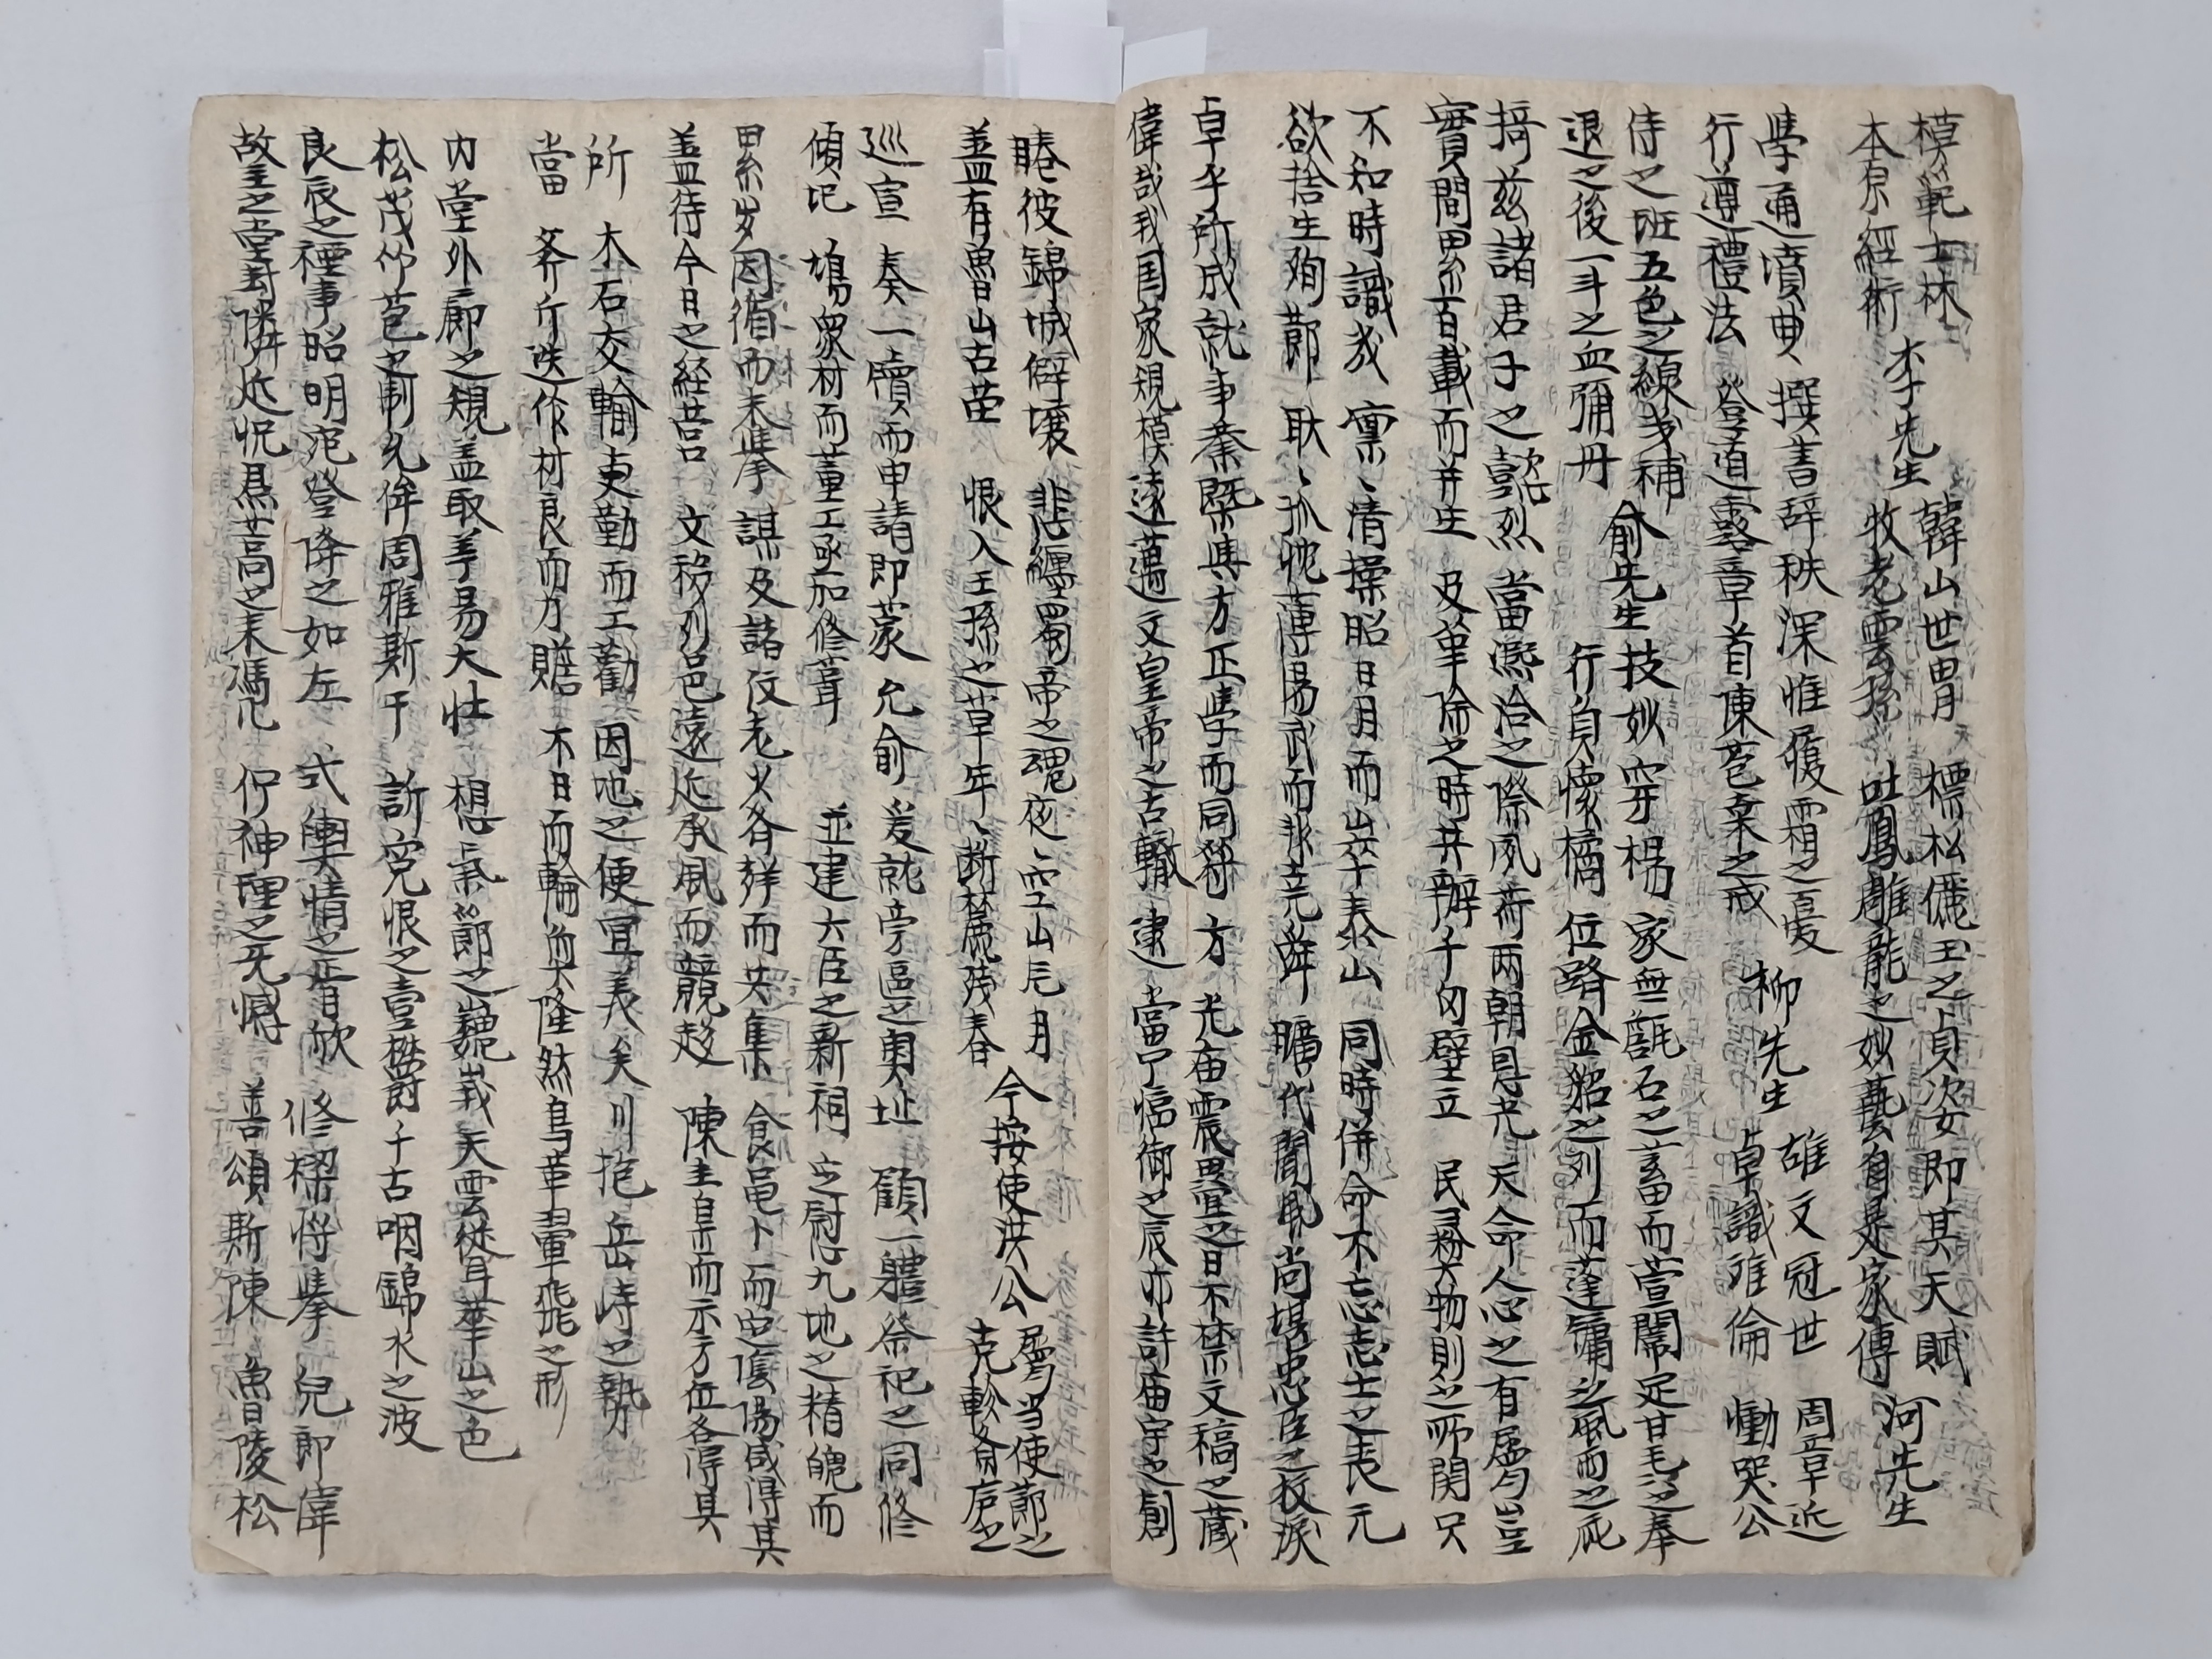 模範士林 李先生 韓山世胄 標松儷玉之貞姿即其天賦 河先生
本原經術 牧老雲孫 吐鳳雕龍之妙藝自是家傳
學通墳典 撰書辞秩深惟履霜之憂 柳先生 雄文冠世 周章近
行遵禮法 登道露章首陳苞桑之戒 卓識難倫 慟哭公
侍之班五色之線 補 兪先生 技妙穿楊 家無甔石之畜而萱闈足甘毛之奉
退之後一斗之血彌丹 行負懷橘 位路金貂之列而蓬牖之風雨之庇
掎茲諸君子之懿烈 當凞洽之際夙荷兩朝恩光 天命人心之有屬豈
實間累百載而并生 及革除之時并辦千仞壁立 民彛物則之所関只
不和時識哉 凛〻清操昭日月而 泰山 同時倂命不忘志士之喪元
欲捨生殉節 耿〻孤忱薄湯武而非堯舜 曠代聞風尚堪忠臣之抆淚
卓乎所成就事業既與方正學而同符 方 光庙震疊之日不禁文稿之蔵
偉哉我国家規模遠邁文皇帝之古轍 逮 當宁臨御之辰亦許庙宇之創
睠彼錦城僻壤 悲纏蜀帝之魂夜〻空山 月 今按使洪公 屬当使節之
盖有魯山古茔 恨入王孫之草年〻断麓殘春 克軫 庐之
巡宣 奏一牘而申請即蒙允兪 爰就旁區之奥址 顧一軆祭祀之同修
傾圮 鳩衆材而董工亟加修葺 並建六臣之新祠 之慰九地之精魄而
累岁因循而未擧 謀及諸 老少各 而夬集 食黽卜而 陰陽咸得其
盖待今日之経营 文移列邑遠近承風而競趍 陳圭臬而示方位各得其
所 木石交輸吏勤而工勸 因地之便宜美矣川抱岳峙之勢
當 斧斤迭作材良而力贍 不日而輪奐隆然鳥革翬飛之形
内堂外廊之規盖取羊易大壮 想氣節之巍峩天雲 華山之色
松茂竹苞之制允侔周雅斯干 訴寃恨之壹欝千古咽錦水之波
良辰之禋事昭明宛登降之如左 式輿情之胥欣 修樑将擧 兒郎偉
故主之霊封隣近怳焄蒿之来馮 佇神理之无憾 善頌斯陳 魯陵松